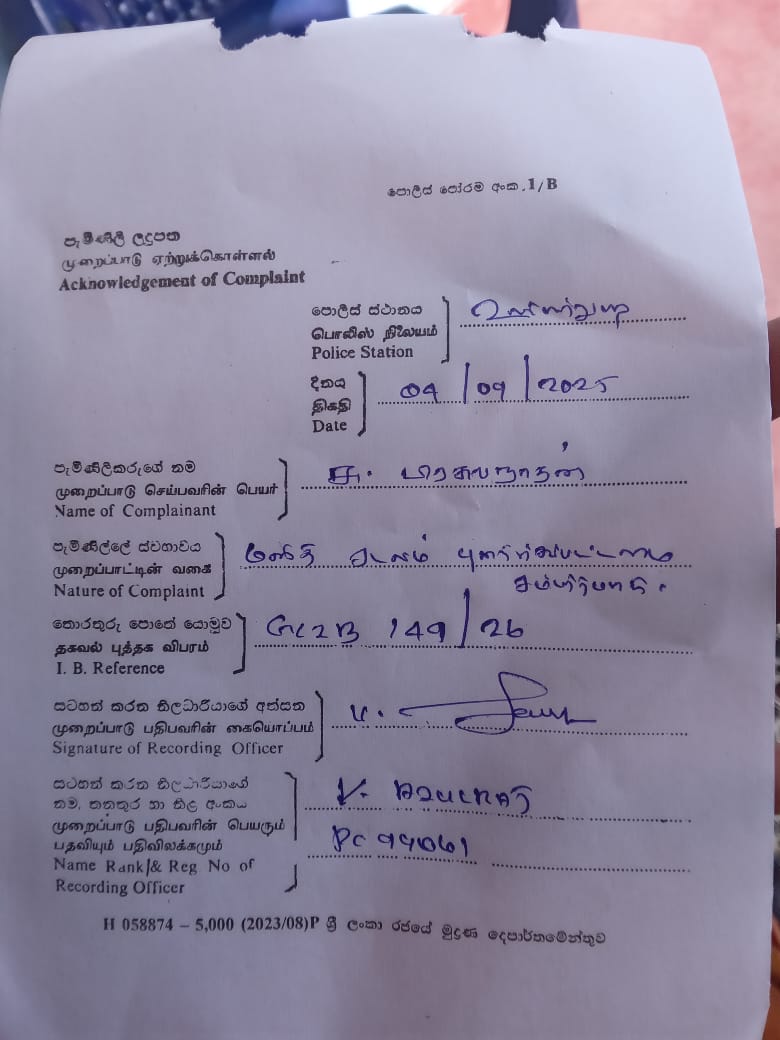 පොලිස් පෝරම අංක. 1/B
පැමිණිලි ලදුපත
முறைப்பாடு ஏற்றுக்கொள்ளல்
Acknowledgement of Complaint
පොලිස් ස්ථානය
பொலிஸ் நிலையம்
Police Station
දිනය
திகதி
Date
04/09/2025
පැමිණිලිකරුගේ නම
முறைப்பாடு செய்பவரின் பெயர்
Name of Complainant
පැමිණිල්ලේ ස්වභාවය
முறைப்பாட்டின் வகை
Nature of Complaint
மனித புணர்
சம்பந்தமாக.
තොරතුරු පොතේ යොමුව
தகவல் புத்தக விபரம்
I. B. Reference
149/26
සටහන් කරන නිලධාරියාගේ අත්සන
முறைப்பாடு பதிபவரின் கையொப்பம்
Signature of Recording Officer
සටහන් කරන නිලධාරියාගේ
නම, තනතුර හා නිල අංකය
முறைப்பாடு பதிபவரின் பெயரும்
பதவியும் பதிவிலக்கமும்
Name Rank/& Reg No of
Recording Officer
PC 99061
H 058874 – 5,000 (2023/08)P ශ්‍රී ලංකා රජයේ මුද්‍රණ දෙපාර්තමේන්තුව